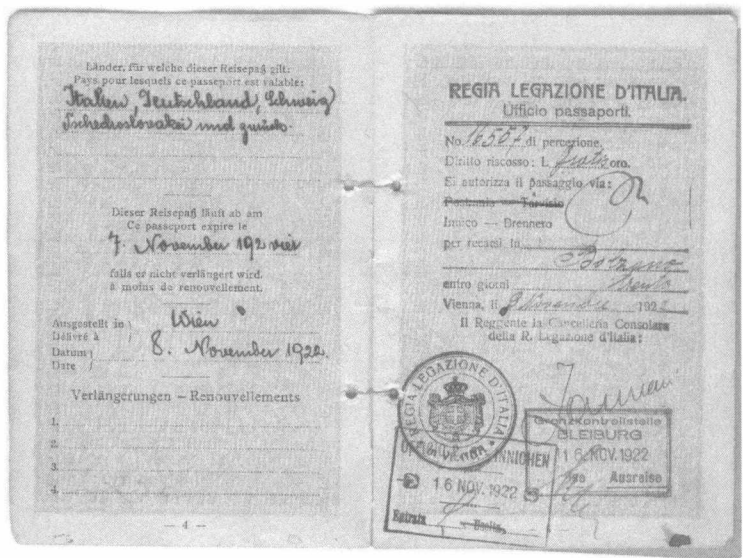 Länder, für welche dieser Reisepaß gilt:
Pays pour lesquels ce passeport est valable:
Italien, Deutschland, Schweiz,
Tschechoslovakei und zurück.
Dieser Reisepaß läuft ab am
Ce passeport expire le
7. November 192 vier
falls er nicht verlängert wird.
à moins de renouvellement.
Ausgestellt in
Délivré à
Wien
Datum
Date
8. November 1922.
Verlängerungen – Renouvellements
1.
2.
3.
4.
— 4 —
REGIA LEGAZIONE D'ITALIA.
Ufficio passaporti.
No. 16557 di percezione.
Diritto riscosso: L. gratis oro.
Si autorizza il passaggio via:
Pontamia — Tarvisio
Innico — Brennero
per recarsi in
Bolzano
entro giorni Trento
Vienna, il 8 Novembre 1922
Il Reggente la Cancelleria Consolare
della R. Legazione d'Italia:
REGIA LEGAZIONE D'ITALIA
Grenzkontrollstelle
BLEIBURG
16. NOV. 1922
Ausreise
INNICHEN
16 NOV. 1922
Entrata
Uscita